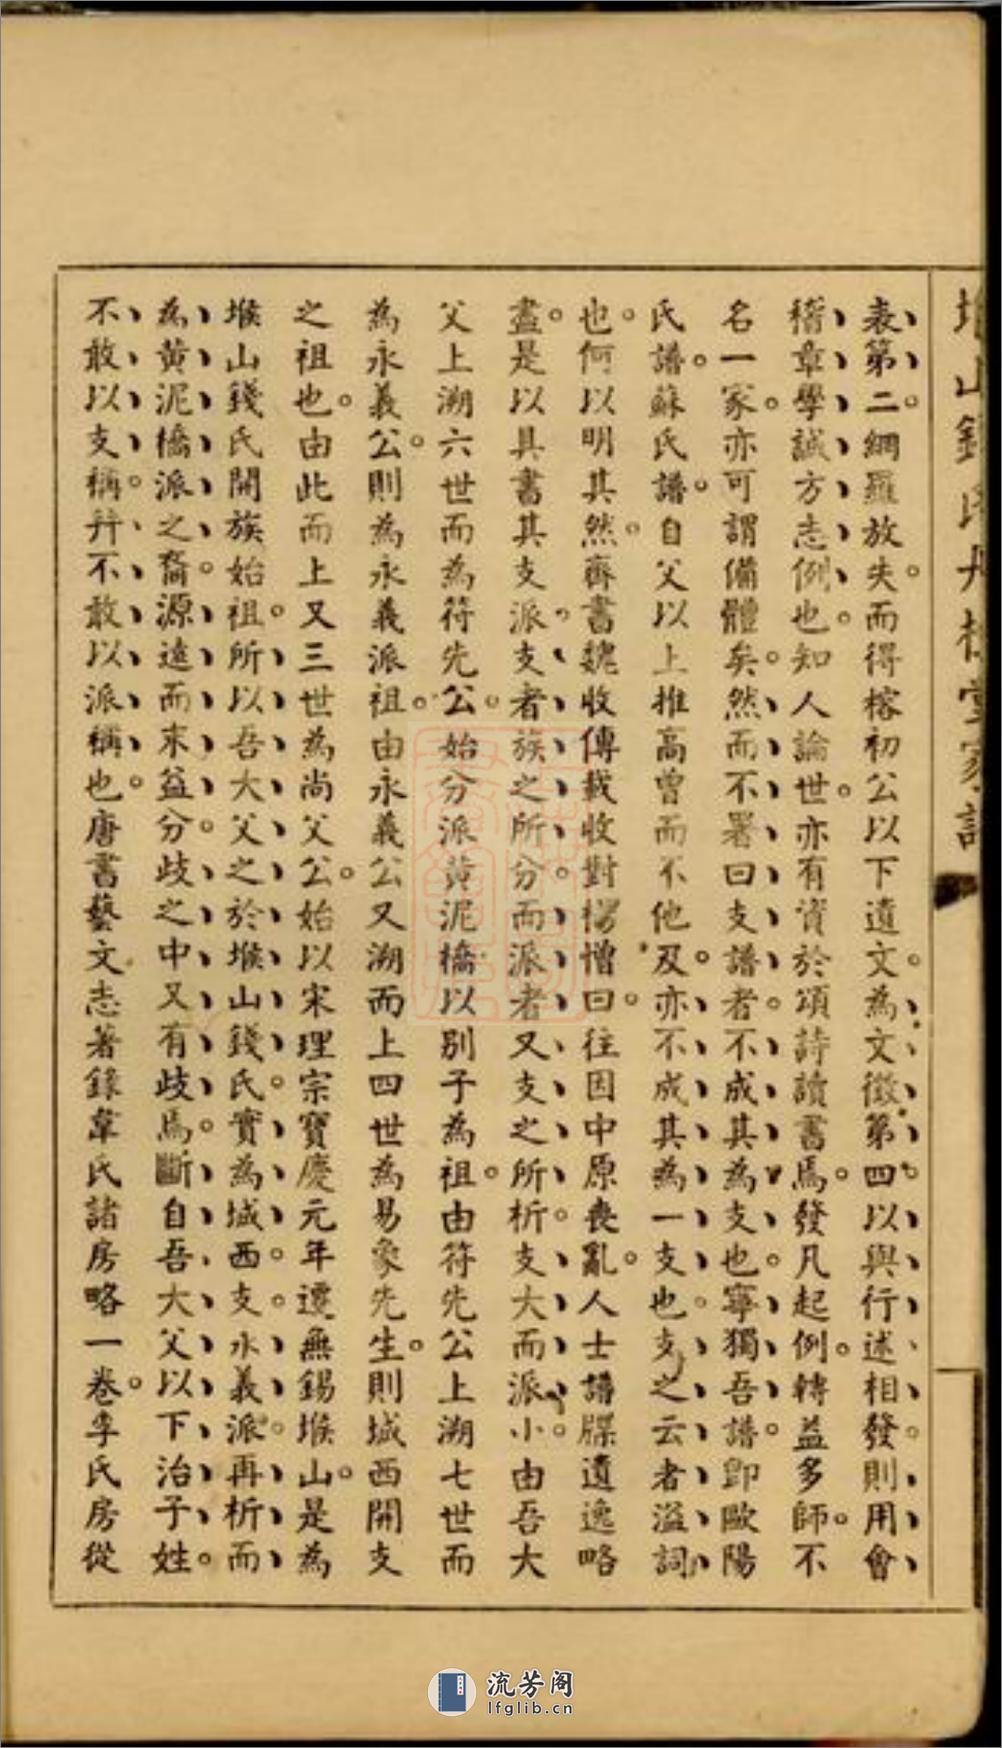 堠山錢氏丹桂堂家譜
表第二網羅放失而得榕初公以下遺文為文徵第四以與行述相發則用會
稽章學誠方志例也知人論世亦有資於頌詩讀書焉發凡起例轉益多師不
名一家亦可謂備體矣然而不署曰支譜者不成其為支也寧獨吾譜即歐陽
氏譜蘇氏譜自父以上推高曾而不他及亦不成其為一支也支之云者溢詞
也何以明其然齊書魏收傳載收對楊愔曰往因中原喪亂人士譜牒遺逸略
盡是以具書其支派支者族之所分而派者又支之所析支大而派小由吾大
父上溯六世而為符先公始分派黃泥橋以別子為祖由符先公上溯七世而
為永義公則為永義派祖由永義公又溯而上四世為易象先生則城西開支
之祖也由此而上又三世為尚父公始以宋理宗寶慶元年遷無錫堠山是為
堠山錢氏開族始祖所以吾大父之於堠山錢氏實為城西支永義派再析而
為黃泥橋派之裔源遠而末益分歧之中又有歧焉斷自吾大父以下治子姓
不敢以支稱并不敢以派稱也唐書藝文志著錄韋氏諸房略一卷李氏房從
流芳阁
lfglib.cn